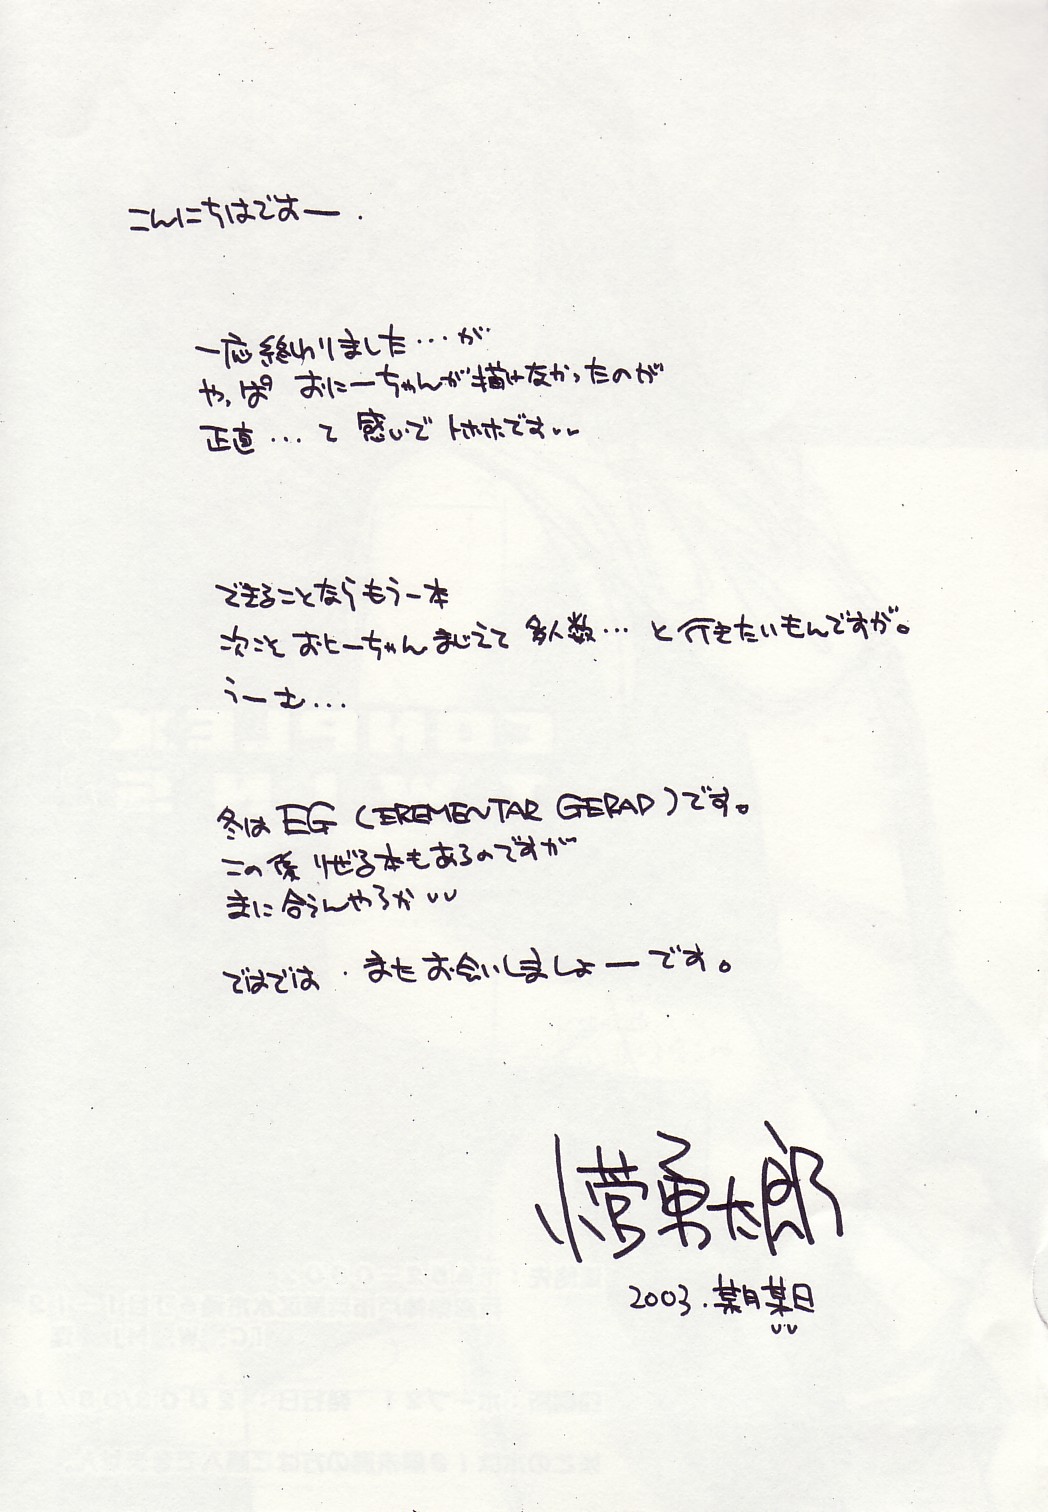 こんにちはですー.
一応終わりました…が
やっぱ おにーちゃんが描けなかったのが
正直…て感じで トホホです
できることならもう一本
次こそ おにーちゃん まじえて 多人数…と行きたいもんですが。
うーむ…
冬は EG (EREMENTAR GERAD)です。
この後 りぜる本もあるのですが
まに合うんやろか
ではでは・またお会いしましょーです。
小菅勇太郎
2003.某月某日
CONPLEX